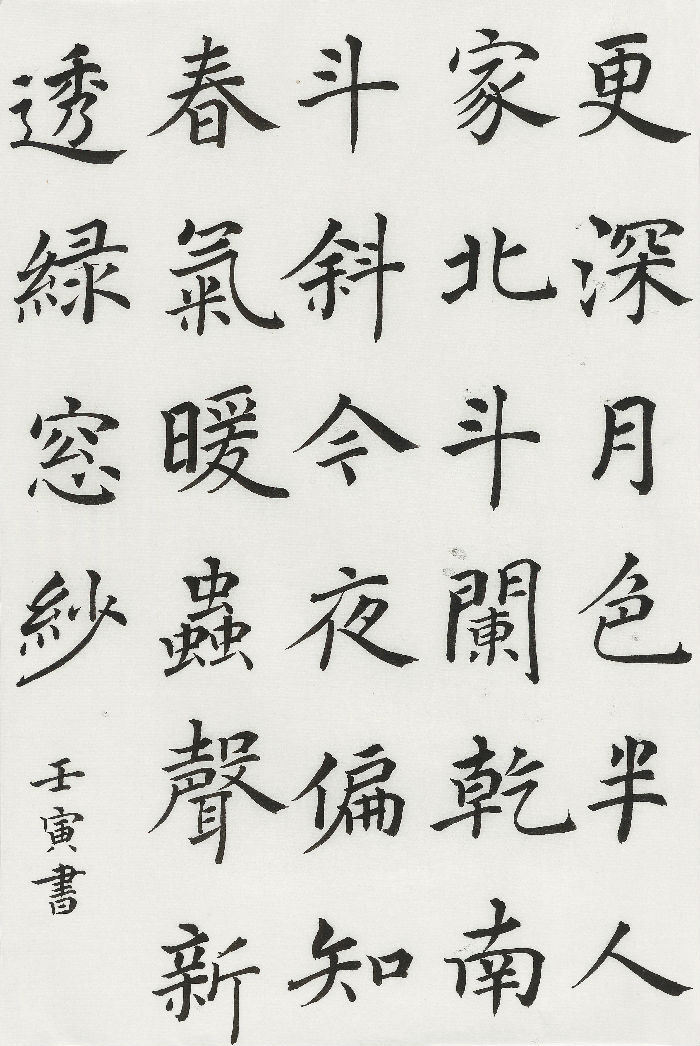 更深月色半人
家北斗闌乾南
斗斜今夜偏知
春氣暖蟲聲新
透緑窓紗
壬寅書